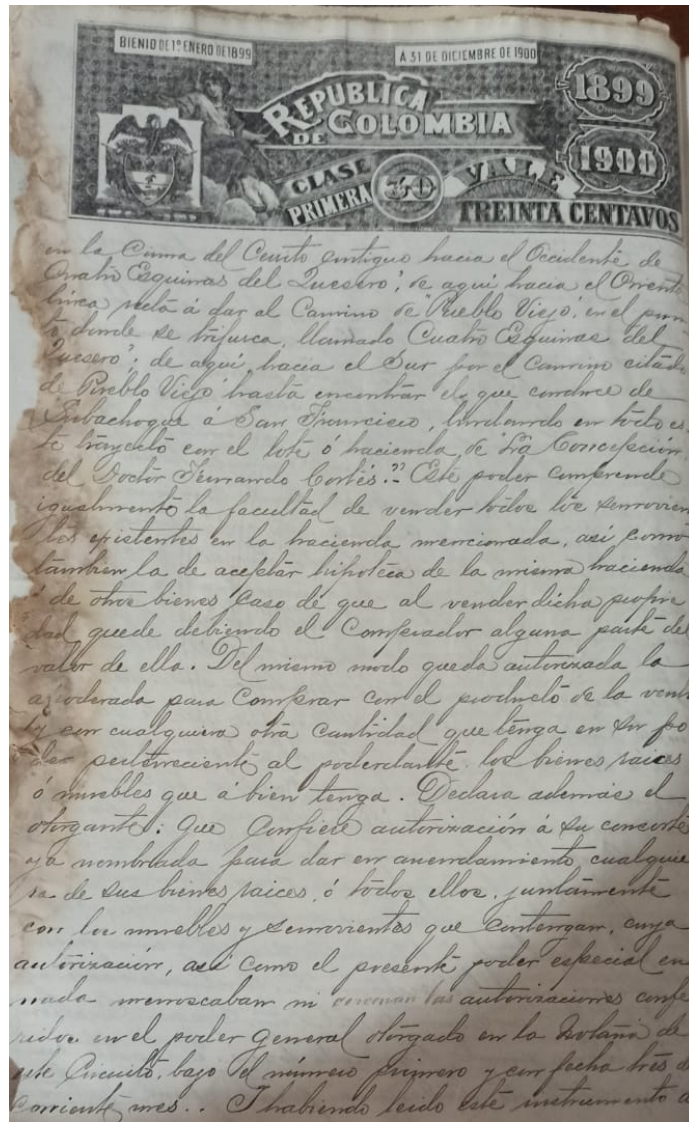 BIENIO DE 1º ENERO DE 1899
A 31 DE DICIEMBRE DE 1900
REPUBLICA
DE COLOMBIA
1899
1900
CLASE
PRIMERA
30
VALE
TREINTA CENTAVOS
en la Cima del Cerrito antiguo hacia el Occidente de
Cuatro Esquinas del Quesero"; de aquí hacia el Oriente
línea recta á dar al Camino de "Pueblo Viejo", en el pun-
to donde se trifurca, llamado Cuatro Esquinas del
Quesero"; de aquí, hacia el Sur por el Camino citado
de Pueblo Viejo hasta encontrar el que conduce de
Subachoque á San Francisco, lindando en todo es-
te trayecto con el lote ó hacienda de "La Concepción"
del Doctor Fernando Cortés." Este poder comprende
igualmente la facultad de vender todos los semovien
tes existentes en la hacienda mencionada, así como
tambien la de aceptar hipoteca de la misma hacienda
ó de otros bienes caso de que al vender dicha propie
dad quede debiendo el Comprador alguna parte del
valor de ella. Del mismo modo queda autorizada la
apoderada para Comprar con el producto de la venta
ó con cualquiera otra Cantidad que tenga en su po
der perteneciente al poderdante los bienes raices
ó muebles que á bien tenga. Declara además el
otorgante: Que Confiere autorización á su consorte
ya nombrada para dar en arrendamiento cualquie
ra de sus bienes raices, ó todos ellos, juntamente
con los muebles y semovientes que contengan, cuya
autorización, así como el presente poder especial en
nada menoscaban ni cercenan las autorizaciones confe
ridas en el poder General otorgado en la Notaría de
este Circuito, bajo el número primero y con fecha tres del
corriente mes.. I habiendo leido este instrumento a